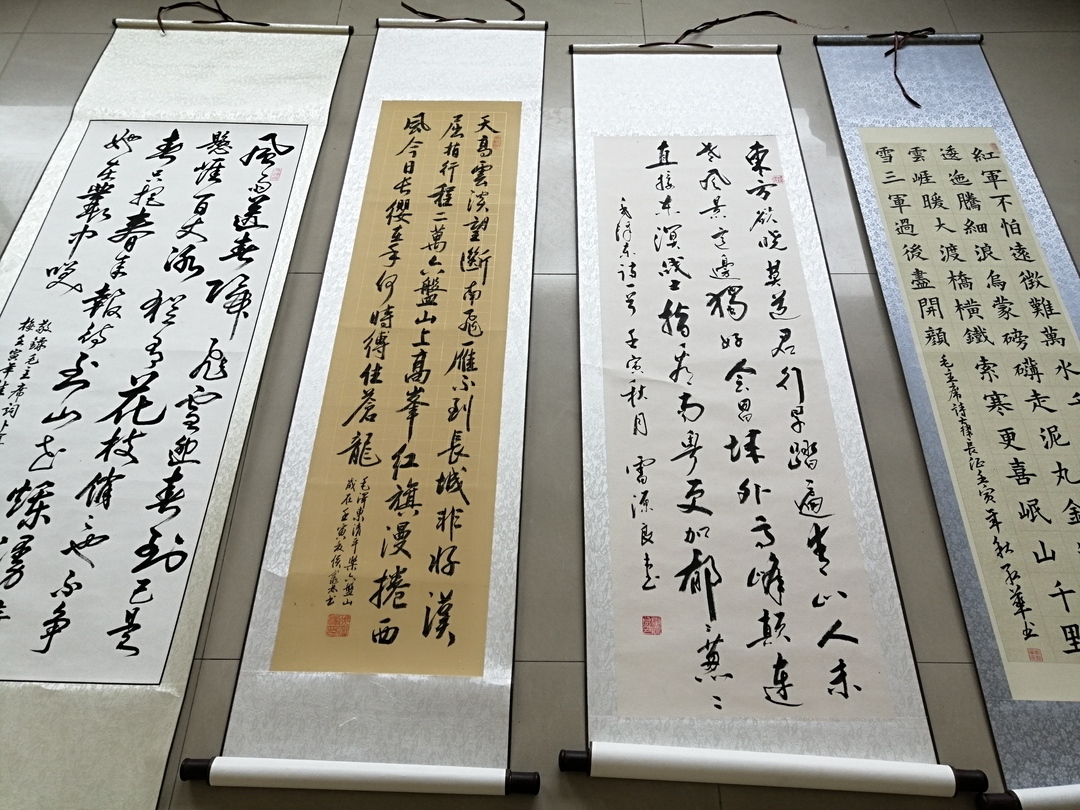 風雨送春歸飛雪迎春到已是
懸崖百丈冰猶有花枝俏〻也不争
春只把春来報待到山花爛漫
她在叢中笑
敬錄毛主席詞卜算
梅壬寅年
天高雲淡望斷南飛雁不到長城非好漢
屈指行程二萬六盤山上高峯紅旗漫捲西
風今日長纓在手何時縛住蒼龍
毛澤東清平樂六盤山
歲在壬寅
東方欲曉莫道君行早踏遍青山人未
老風景這邊獨好會昌城外高峰顛連
直接东溟戰士指看南粤更加郁〻葱〻
毛澤东詩一首 壬寅秋月 雷源良书
紅軍不怕遠徵難萬水千
逶迤騰細浪烏蒙磅礴走泥丸金
雲崕暖大渡橋橫鐵索寒更喜岷山千里
雪三軍過後盡開顏
毛主席詩七律長征壬寅年秋